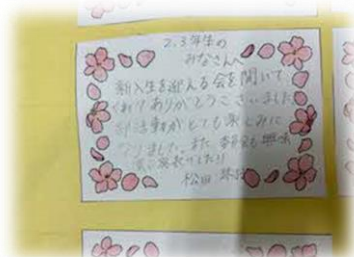 2、3年生の
みなさんへ
新入生を迎える会を開いて
くれてありがとうございました
部活動がとても楽しみに
なりました。また、委員会も興味
松田